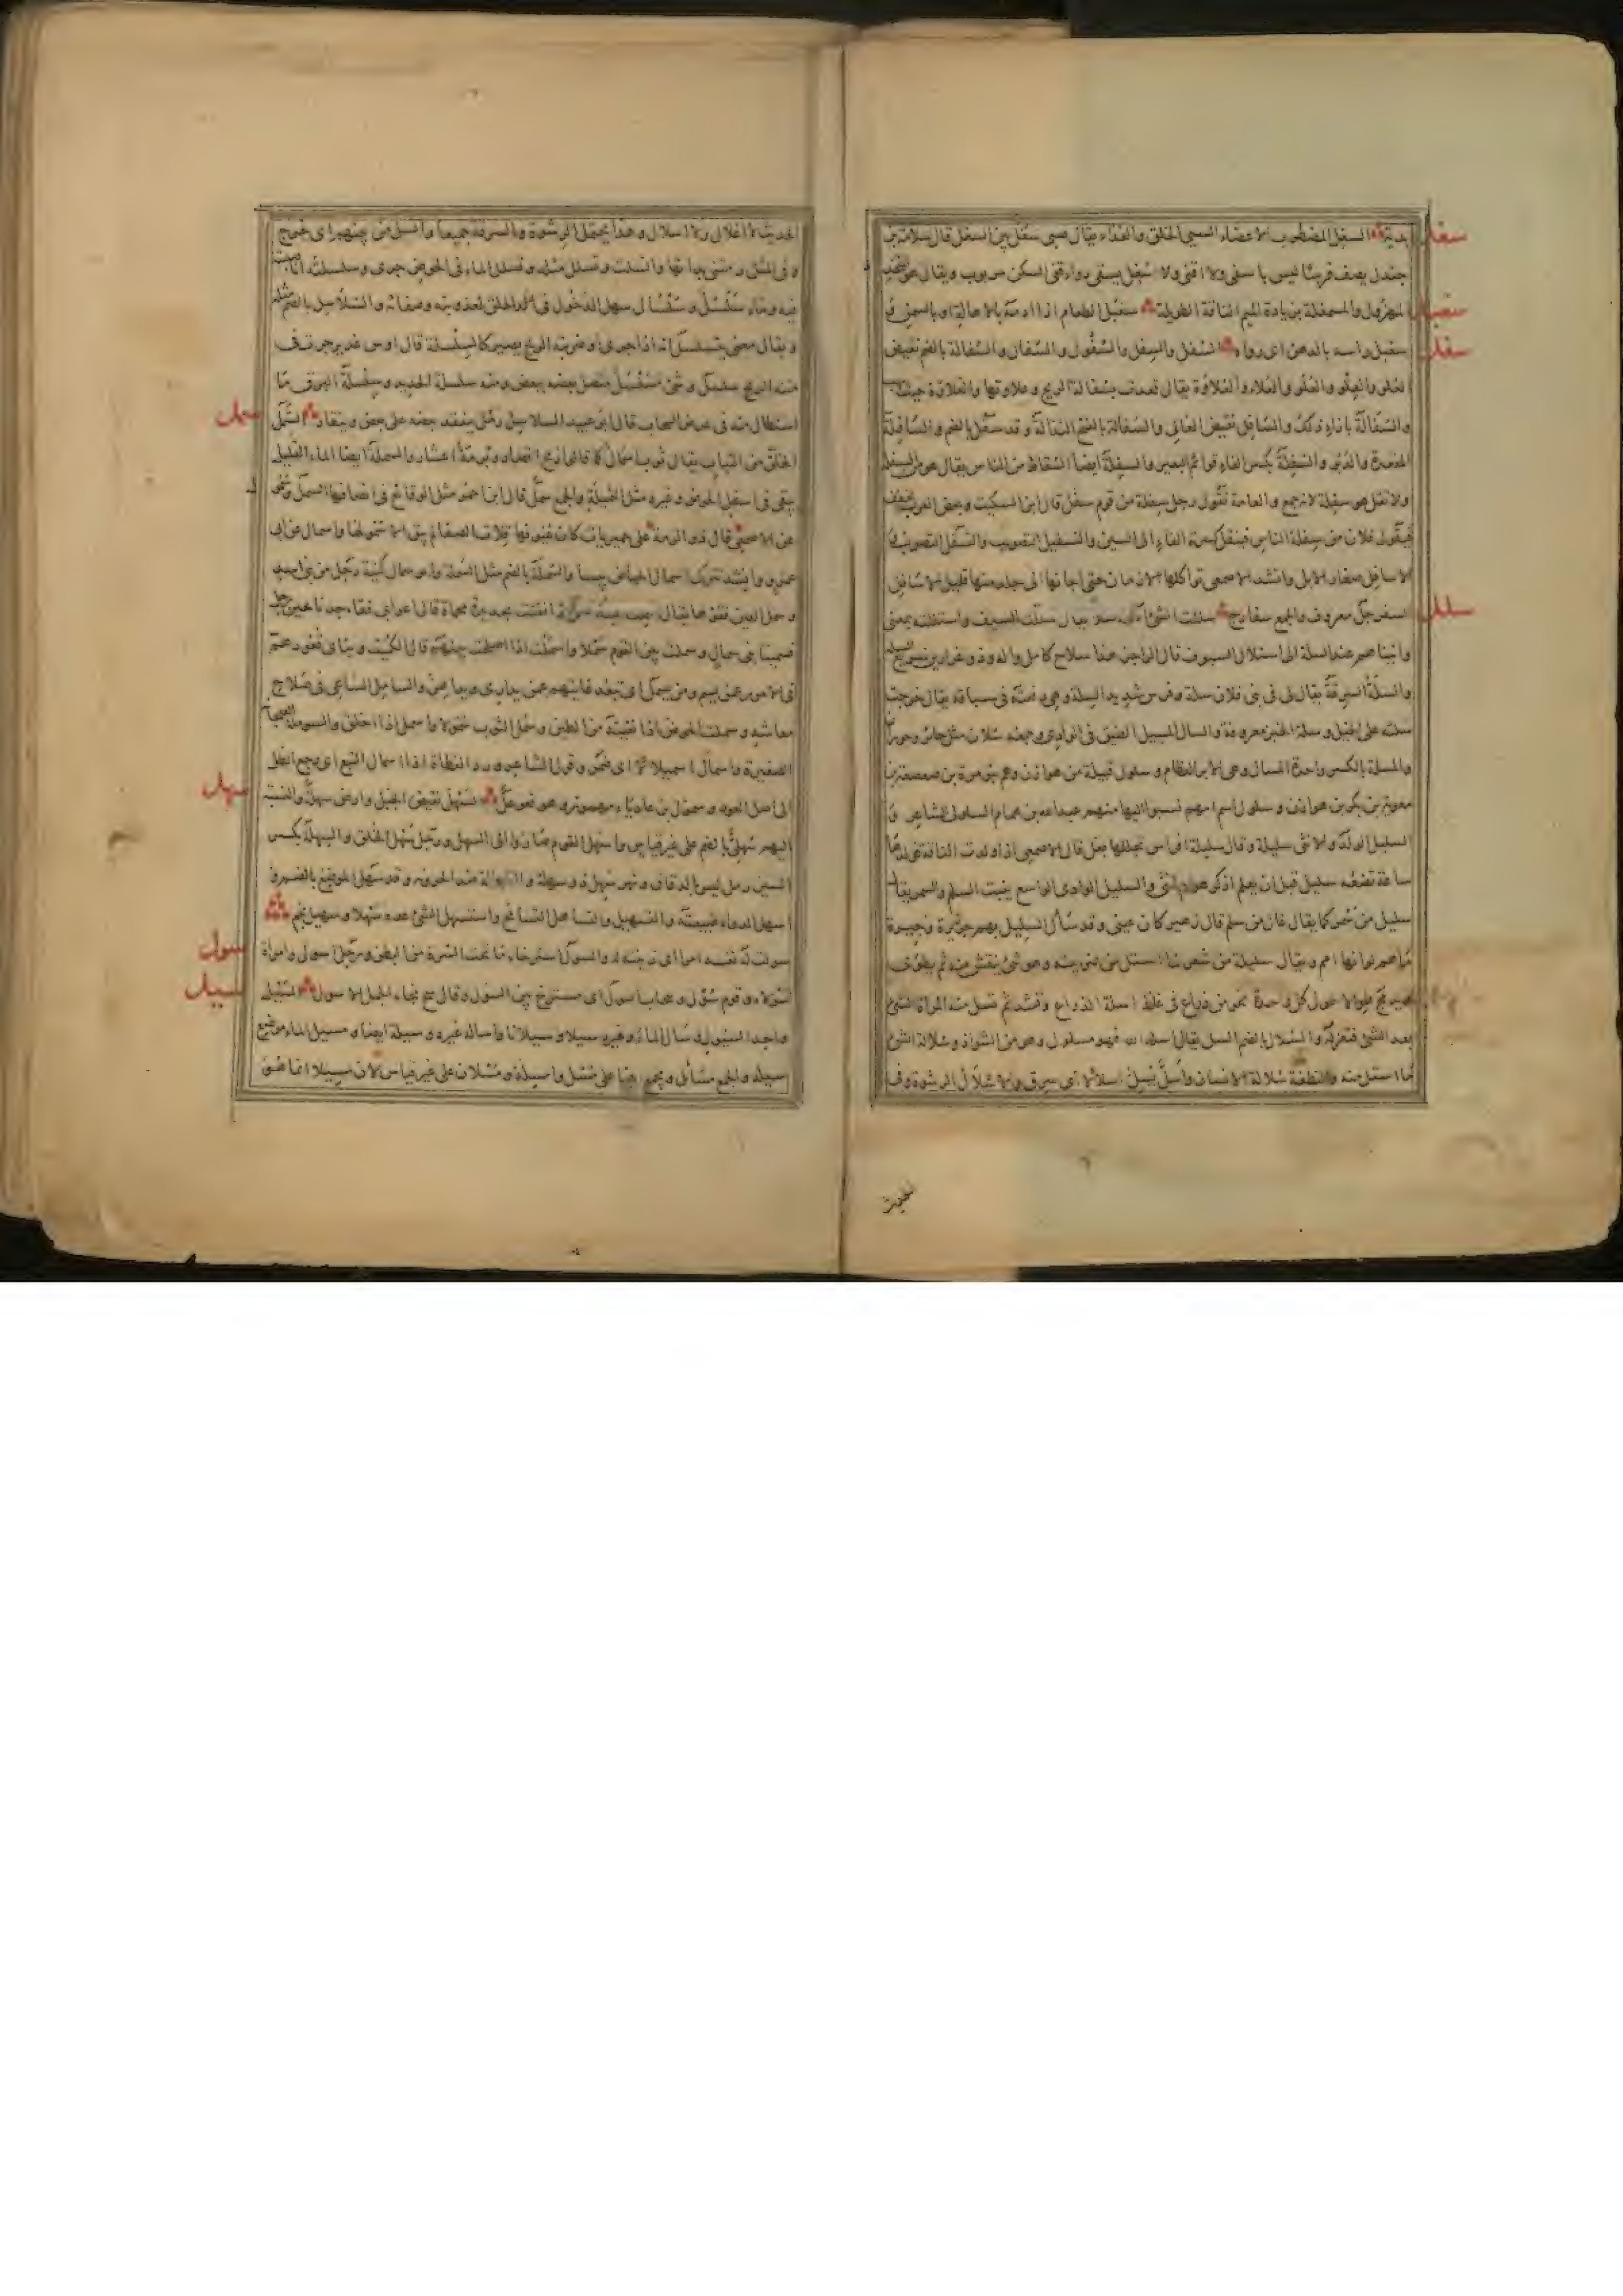 سغل
بدية السغل المضطرب الاعضاء السيئ الخلق والغذاء يقال صبى سغل بين السغل قال سلامة بن
جندل يصف فرسا ليس باسفى ولا اقنى ولا سغل يسقى دواء قفى السكن مربوب ويقال هو المتخدد
سغبل
المهزول والمسمغلة بزيادة الميم الناقة الطويلة سغبل الطعام اذا ادمه بالاهالة او بالسمن و
سفل
سغبل راسه بالدهن اى رواه السفل والسفل والسفول والسفال والسفالة بالضم نقيض
العلو والعلو والعلو والعلاء والعلاوة يقال قعدت بسفالة الريح وعلاوتها والعلاوة حيث تهب
والسفالة بازاء ذلك والسافل نقيض العالى والسفالة بالفتح النذالة وقد سفل بالضم والسافلة
المقعدة والدبر والسفلة بكسر الفاء قوائم البعير والسفلة ايضا السقاط من الناس يقال هو من السفلة
ولا تقل هو سفلة لانها جمع والعامة تقول رجل سفلة من قوم سفل قال ابن السكيت وبعض العرب يخفف
فيقول فلان من سفلة الناس فينقل كسرة الفاء الى السين والتسفيل التصويب والتسفل التصوب و
الاسافل صغار الابل وانشد الاصمعى تواكلها الازمان حتى اجاءنها الى جلد منها قليل الاسافل
سلل
السفرجل معروف والجمع سفارج سللت الشئ اسله سلا يقال سللت السيف واستللته بمعنى
واتيناهم عند السلة اى استلال السيوف قال الراجز هذا سلاح كامل واله وذو غرارين سريع السله
والسلة السرقة يقال لى فى بنى فلان سلة وفرس شديد السلة وهى دفعته فى سباقه يقال خرجت
سلته على الخيل وسلة الخبز معروفة والسال المسيل الضيق فى الوادى وجمعه سلان مثل حائر وحوران
والمسلة بالكسر واحدة المسال وهى الابر العظام وسلول قبيلة من هوازن وهم بنو مرة بن صعصعة بن
معوية بن بكر بن هوازن وسلول اسم امهم نسبوا اليها منهم عبد الله بن همام السلولى الشاعر و
السليل الولد والانثى سليلة وقال سليلة افراس تجللها بغل قال الاصمعى اذا ولدت الناقة فولدها
ساعة تضعه سليل قبل ان يعلم اذكر هو ام انثى والسليل الوادى الواسع ينبت السلم والسمر يقال
سليل من سمر كما يقال غال من سلم قال زهير كان عينى وقد سال السليل بهم وجيرة
ما هم لو انهم امم ويقال سليلة من شعر لما استل من ضريبته وهو شئ ينفش منه ثم يطوى
ثم يدمج طوالا طول كل واحدة نحو من ذراع فى غلظ اسلة الذراع وتشد ثم تسل منه المراة الشئ
بعد الشئ فتغزله والسلال بالضم السل يقال اسله الله فهو مسلول وهو من الشواذ وسلالة الشئ
ما استل منه والنطفة سلالة الانسان واسل يسل اسلالا اى سرق والاسلال الرشوة وفى
الحديث
الحديث لا اغلال ولا اسلال وهذا يحتمل الرشوة والسرقة جميعا وانسل من بينهم اى خرج
وفى المثل رمتنى بدائها وانسلت وتسلل مثله وتسلسل الماء فى الحلق جرى وسلسلته انا صببته
فيه وماء سلسل وسلسال سهل الدخول فى الحلق لعذوبته وصفائه والسلاسل بالضم مثله
ويقال معنى يتسلسل انه اذا جرى او ضربته الريح يصير كالسلسلة قال اوس غدير جرت فى
متنه الريح سلسل وشئ مسلسل متصل بعضه ببعض ومنه سلسلة الحديد وسلسلة البرق ما
سمل
استطال منه فى عرض السحاب قال ابو عبيد السلاسل رمل ينعقد بعضه على بعض وينقاد السمل
الخلق من الثياب يقال ثوب اسمال كما قالوا رمح اقصاد وبرمة اعشار والسملة ايضا الماء القليل
يبقى فى اسفل الحوض وغيره مثل الثميلة والجمع سمل قال ابن احمر مثل الوقائع فى انصافها السمل وسمول
عن الاصمعى قال ذو الرمة على حميريات كان عيونها قلات الصفا لم يبق الا سمولها واسمال عن ابى
عمرو وانشد تترك اسمال الحياض يبسا والسملة بالضم مثل السملة وابو سمال كنية رجل من بنى اسد
وسمل العين فقؤها يقال سملت عينه تسمل اذا فقئت بحديدة محماة قال اعرابى فقأ جدنا عين رجل
فسمينا بنى سمال وسملت بين القوم سملا واسملت اذا اصلحت بينهم قال الكميت وتناى قعودهم
فى الامور عمن يسم ومن يسمل اى تبعد غايتهم عمن يدارى ويداهن والسامل الساعى فى صلاح
معاشه وسملت الحوض اذا نقيته من الطين وسمل الثوب سمولا واسمل اذا اخلق والسوملة الفنجانة
الصغيرة واسمال اسميلالا اى ضمر وقول الشاعر ورد القطاة اذا اسمال التبع اى رجع الظل
سهل
الى اصل العود وسموأل بن عادياء مهموز وهو فعوعل السهل نقيض الجبل وارض سهلة والنسبة
اليهم سهلى بالضم على غير قياس واسهل القوم صاروا الى السهل ورجل سهل الخلق والسهلة بكسر
السين رمل ليس بالدقاق ونهر سهل ذو سهلة والسهولة ضد الحزونة وقد سهل الموضع بالضم و
اسهل الدواء طبيعته والتسهيل والتساهل التسامح واستسهل الشئ عده سهلا وسهيل نجم
سول
سولت له نفسه امرا اى زينته له والسول استرخاء ما تحت السرة من البطن ورجل اسول وامراة
سيل
سولاء وقوم سول وسحاب اسول اى مسترخ بين السول وقال سح نجاء الحمل الاسول السيل
واحد السيول وسال الماء وغيره سيلا وسيلانا واساله غيره وسيله ايضا ومسيل الماء موضع
سيله والجمع مسائل ويجمع ايضا على مسل وامسلة ومسلان على غير قياس لان مسيلا انما هو